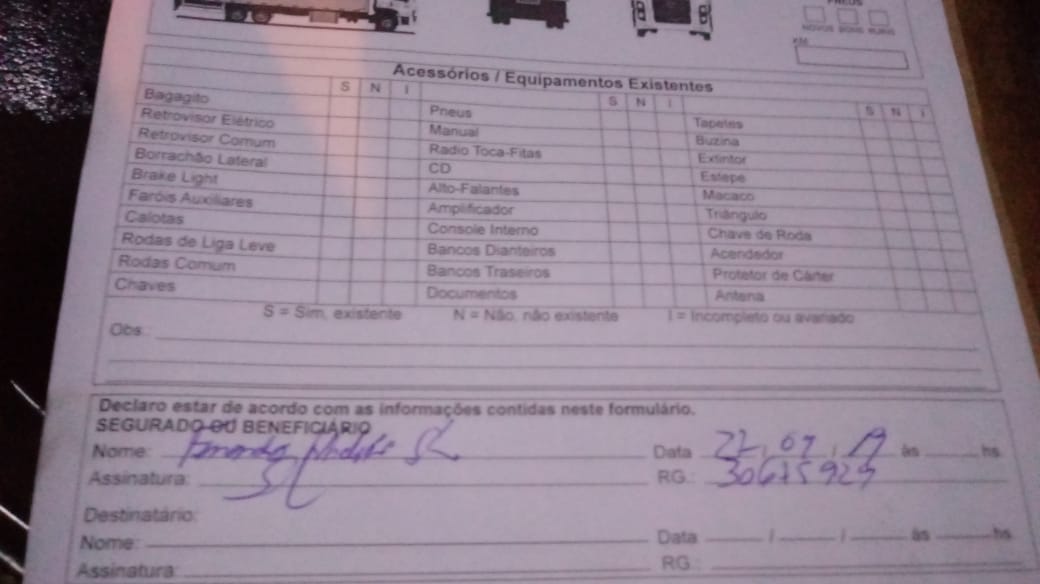 PNEUS
NOVOS BONS RUINS
KM
Acessórios / Equipamentos Existentes
S N I S N I S N I
Bagagito Pneus Tapetes
Retrovisor Elétrico Manual Buzina
Retrovisor Comum Radio Toca-Fitas Extintor
Borrachão Lateral CD Estepe
Brake Light Alto-Falantes Macaco
Faróis Auxiliares Amplificador Triângulo
Calotas Console Interno Chave de Roda
Rodas de Liga Leve Bancos Dianteiros Acendedor
Rodas Comum Bancos Traseiros Protetor de Cárter
Chaves Documentos Antena
S = Sim, existente N = Não, não existente I = Incompleto ou avariado
Obs.:
Declaro estar de acordo com as informações contidas neste formulário.
SEGURADO OU BENEFICIÁRIO
Nome: Data às hs
Assinatura: RG.:
Destinatário:
Nome: Data / / às hs
Assinatura: RG